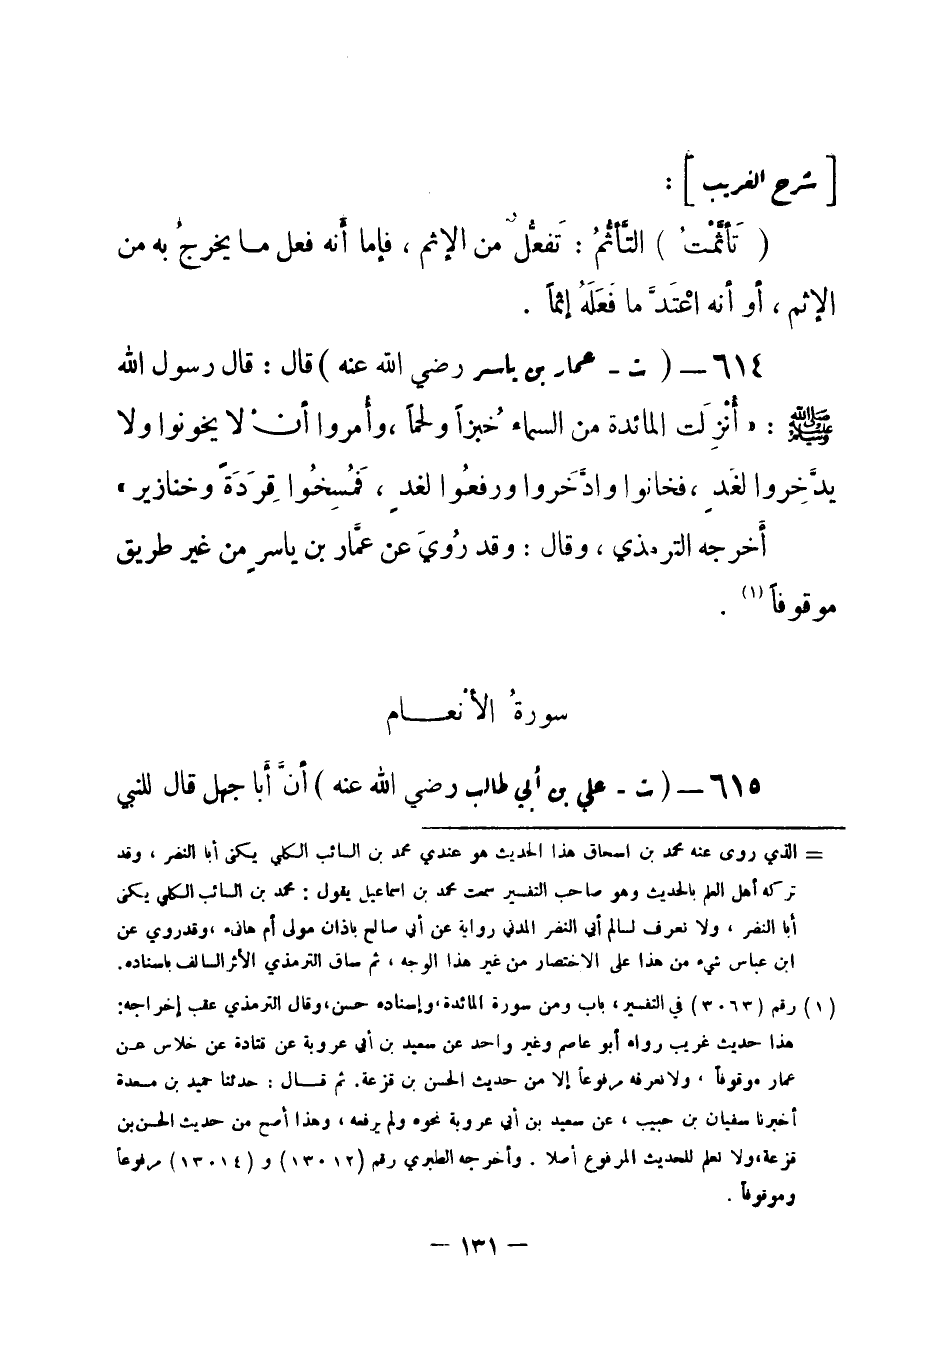 [ شرح الغريب ] :
( تَأَثَّمْتُ ) التَّأَثُّمُ : تَفعُّلٌ من الإثم ، فإما أنه فعل ما يخرجُ به من
الإثم ، أو أنه اعْتَدَّ ما فَعَلَهُ إثماً .
٦١٤ – ( ت - عمار بن ياسر رضي الله عنه ) قال : قال رسول الله
ﷺ : « أُنْزِلَت المائدة من السماء خُبزاً ولحماً ، وأُمروا أن لا يخونوا ولا
يدَّخِروا لغَدٍ ، فخانوا وادَّخَروا ورفعُوا لغدٍ ، فَمُسِخُوا قِرَدَةً وخنازير »
أَخرجه الترمذي ، وقال : وقد رُويَ عن عمَّار بن ياسرٍ من غير طريق
موقوفاً (١) .
سورةُ الأنعام
٦١٥ – ( ت - علي بن أبي طالب رضي الله عنه ) أنَّ أبا جهل قال للنبي
= الذي روى عنه محمد بن اسحاق هذا الحديث هو عندي محمد بن السائب الكلبي يكنى أبا النضر ، وقد
تركه أهل العلم بالحديث وهو صاحب التفسير سمعت محمد بن اسماعيل يقول : محمد بن السائب الكلبي يكنى
أبا النضر ، ولا نعرف لسالم أبي النضر المدني رواية عن أبي صالح باذان مولى أم هانىء ، وقد روي عن
ابن عباس شيء من هذا على الاختصار من غير هذا الوجه ، ثم ساق الترمذي الأثر السالف باسناده.
(١) رقم (٣٠٦٣) في التفسير ، باب ومن سورة المائدة ، وإسناده حسن ، وقال الترمذي عقب إخراجه:
هذا حديث غريب رواه أبو عاصم وغير واحد عن سعيد بن أبي عروبة عن قتادة عن خلاس عن
عمار موقوفاً ، ولا نعرفه مرفوعاً إلا من حديث الحسن بن قزعة. ثم قال : حدثنا حميد بن مسعدة
أخبرنا سفيان بن حبيب ، عن سعيد بن أبي عروبة نحوه ولم يرفعه ، وهذا أصح من حديث الحسن بن
قزعة، ولا نعلم للحديث المرفوع أصلا . وأخرجه الطبري رقم (١٣٠١٢) و (١٣٠١٤) مرفوعاً
وموقوفاً .
– ١٣١ –